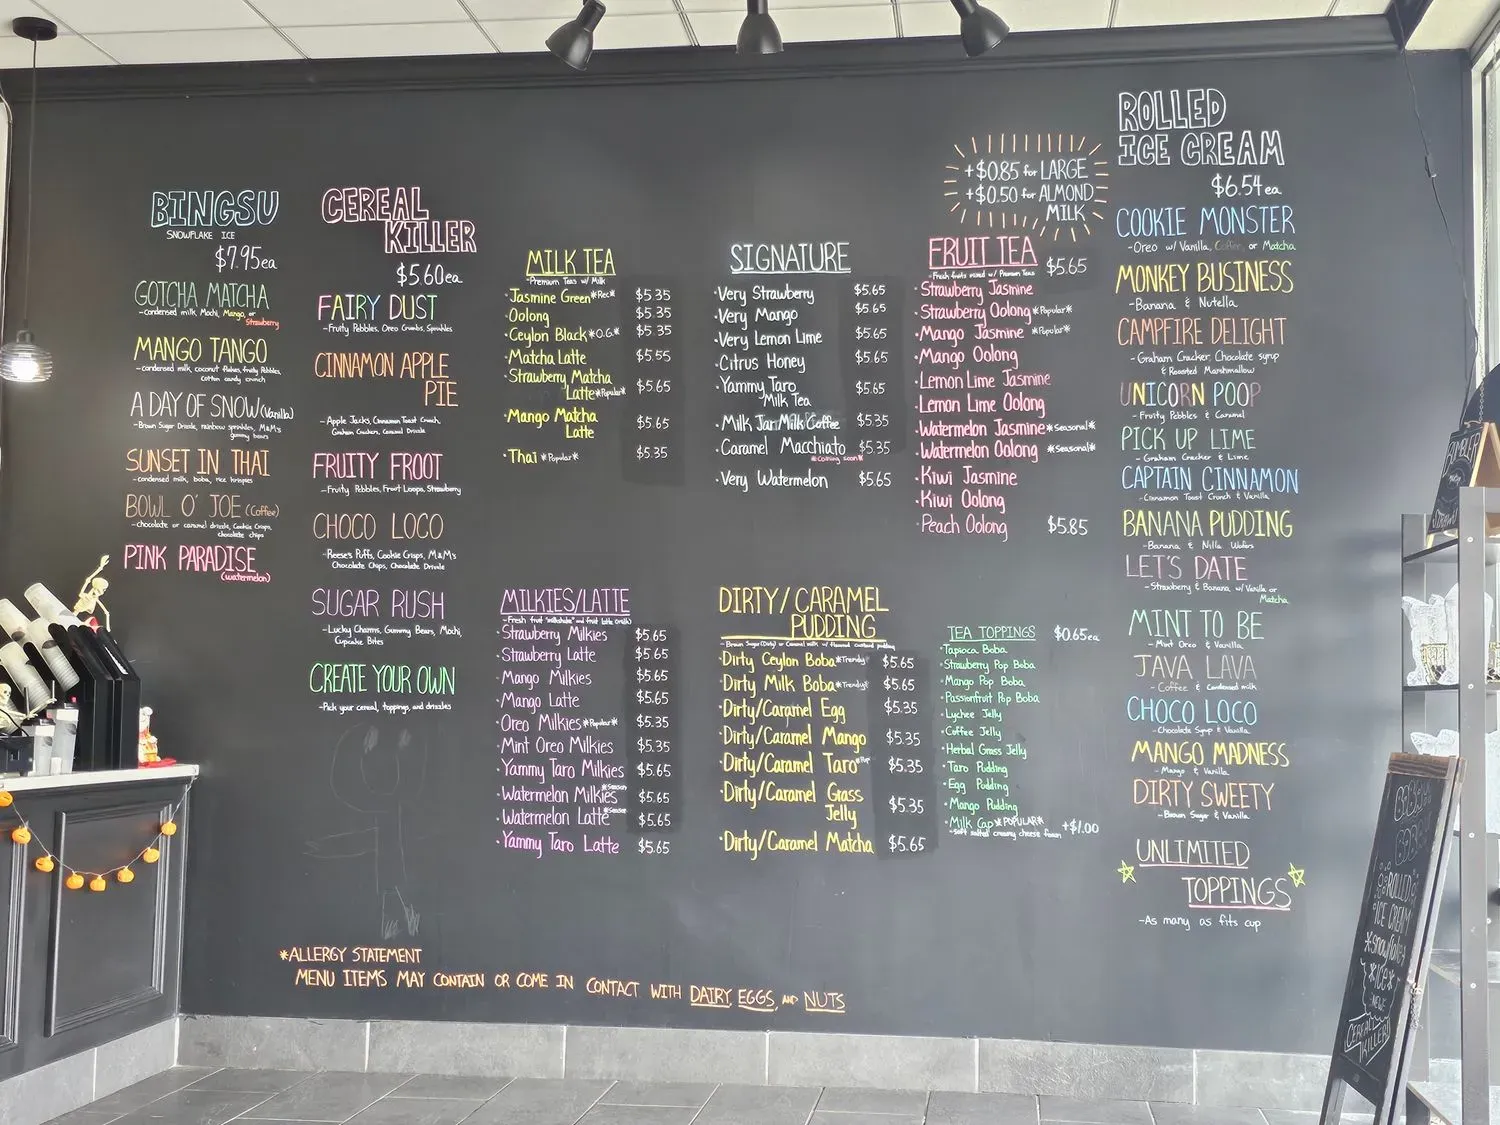 BINGSU
SNOWFLAKE ICE
$7.95ea
GOTCHA MATCHA
-condensed milk, Mochi, Mango, or
Strawberry
MANGO TANGO
-condensed milk, coconut flakes, fruity Pebbles,
cotton candy crunch
A DAY OF SNOW (Vanilla)
-Brown Sugar Drizzle, rainbow sprinkles, M&M's
gummy bears
SUNSET IN THAI
-condensed milk, boba, rice krispies
BOWL O' JOE (Coffee)
-chocolate or caramel drizzle, Cookie Crisps,
chocolate chips
PINK PARADISE
(watermelon)
CEREAL
KILLER
$5.60ea
FAIRY DUST
-Fruity Pebbles, Oreo Crumbs, Sprinkles
CINNAMON APPLE
PIE
-Apple Jacks, Cinnamon Toast Crunch,
Graham Crackers, Caramel Drizzle
FRUITY FROOT
-Fruity Pebbles, Froot Loops, Strawberry
CHOCO LOCO
-Reese's Puffs, Cookie Crisps, M&M's
Chocolate Chips, Chocolate Drizzle
SUGAR RUSH
-Lucky Charms, Gummy Bears, Mochi,
Cupcake Bites
CREATE YOUR OWN
-Pick your cereal, toppings, and drizzles
MILK TEA
-Premium Teas w/ Milk
·Jasmine Green *Rec* $5.35
·Oolong $5.35
·Ceylon Black *O.G.* $5.35
·Matcha Latte $5.55
·Strawberry Matcha
Latte *Popular* $5.65
·Mango Matcha
Latte $5.65
·Thai *Popular* $5.35
SIGNATURE
·Very Strawberry $5.65
·Very Mango $5.65
·Very Lemon Lime $5.65
·Citrus Honey $5.65
·Yummy Taro
Milk Tea $5.65
·Milk Jar Milk Coffee $5.35
·Caramel Macchiato $5.35
*Coming soon*
·Very Watermelon $5.65
+$0.85 for LARGE
+$0.50 for ALMOND
MILK
FRUIT TEA $5.65
-Fresh fruits mixed w/ Premium Teas
·Strawberry Jasmine
·Strawberry Oolong *Popular*
·Mango Jasmine *Popular*
·Mango Oolong
·Lemon Lime Jasmine
·Lemon Lime Oolong
·Watermelon Jasmine *Seasonal*
·Watermelon Oolong *Seasonal*
·Kiwi Jasmine
·Kiwi Oolong
·Peach Oolong $5.85
MILKIES/LATTE
-Fresh fruit "milkshake" and fruit latte (milk)
·Strawberry Milkies $5.65
·Strawberry Latte $5.65
·Mango Milkies $5.65
·Mango Latte $5.65
·Oreo Milkies *Popular* $5.35
·Mint Oreo Milkies $5.35
·Yummy Taro Milkies $5.65
·Watermelon Milkies $5.65
·Watermelon Latte $5.65
·Yummy Taro Latte $5.65
DIRTY/CARAMEL
PUDDING
-Brown Sugar (Dirty) or Caramel milk w/ flavored custard pudding
·Dirty Ceylon Boba *Trendy* $5.65
·Dirty Milk Boba *Trendy* $5.65
·Dirty/Caramel Egg $5.35
·Dirty/Caramel Mango $5.35
·Dirty/Caramel Taro $5.35
·Dirty/Caramel Grass
Jelly $5.35
·Dirty/Caramel Matcha $5.65
TEA TOPPINGS $0.65ea
·Tapioca Boba
·Strawberry Pop Boba
·Mango Pop Boba
·Passionfruit Pop Boba
·Lychee Jelly
·Coffee Jelly
·Herbal Grass Jelly
·Taro Pudding
·Egg Pudding
·Mango Pudding
·Milk Cap *POPULAR* +$1.00
-soft salted creamy cheese foam
ROLLED
ICE CREAM
$6.54ea
COOKIE MONSTER
-Oreo w/ Vanilla, Coffee, or Matcha
MONKEY BUSINESS
-Banana & Nutella
CAMPFIRE DELIGHT
-Graham Cracker, Chocolate syrup
& Roasted Marshmallow
UNICORN POOP
-Fruity Pebbles & Caramel
PICK UP LIME
-Graham Cracker & Lime
CAPTAIN CINNAMON
-Cinnamon Toast Crunch & Vanilla
BANANA PUDDING
-Banana & Nilla Wafers
LET'S DATE
-Strawberry & Banana w/ Vanilla or
Matcha
MINT TO BE
-Mint Oreo & Vanilla
JAVA LAVA
-Coffee & Condensed milk
CHOCO LOCO
-Chocolate Syrup & Vanilla
MANGO MADNESS
-Mango & Vanilla
DIRTY SWEETY
-Brown Sugar & Vanilla
UNLIMITED
TOPPINGS
-As many as fits cup
*ALLERGY STATEMENT
MENU ITEMS MAY CONTAIN OR COME IN CONTACT WITH DAIRY, EGGS, AND NUTS
ROLLED
ICE CREAM
*snowflakey
*ICE*
-NEW-
CEREAL
KILLER!